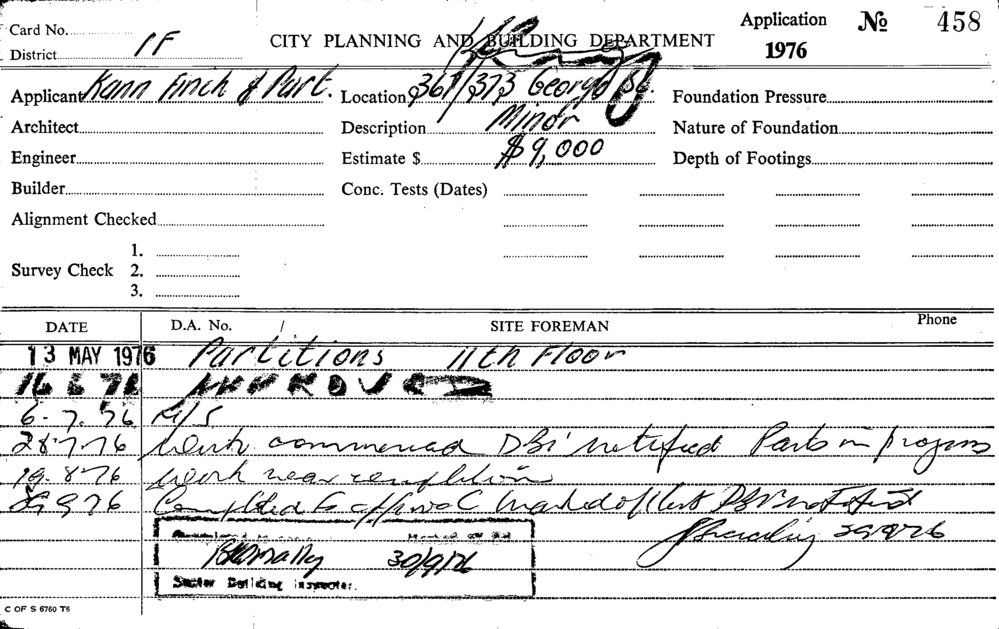 Card No. CITY PLANNING AND BUILDING DEPARTMENT Application No 458
District 1F 1976
Applicant Kann Finch & Part. Location 367/373 George St. Foundation Pressure
Architect Description Minor Nature of Foundation
Engineer Estimate $ $9,000 Depth of Footings
Builder Conc. Tests (Dates)
Alignment Checked
1.
Survey Check 2.
3.
DATE D.A. No. / SITE FOREMAN Phone
13 MAY 1976 Partitions 11th Floor
16 6 76 APPROVED
6-7.76 N/S
28.7.76 Work commenced DBI notified Parts in progress
19.8.76 Work near completion
29 9 76 Completed to approval marked off DBI notified
29/9/76
30/9/76
Senior Building Inspector.
C OF S 6760 T6